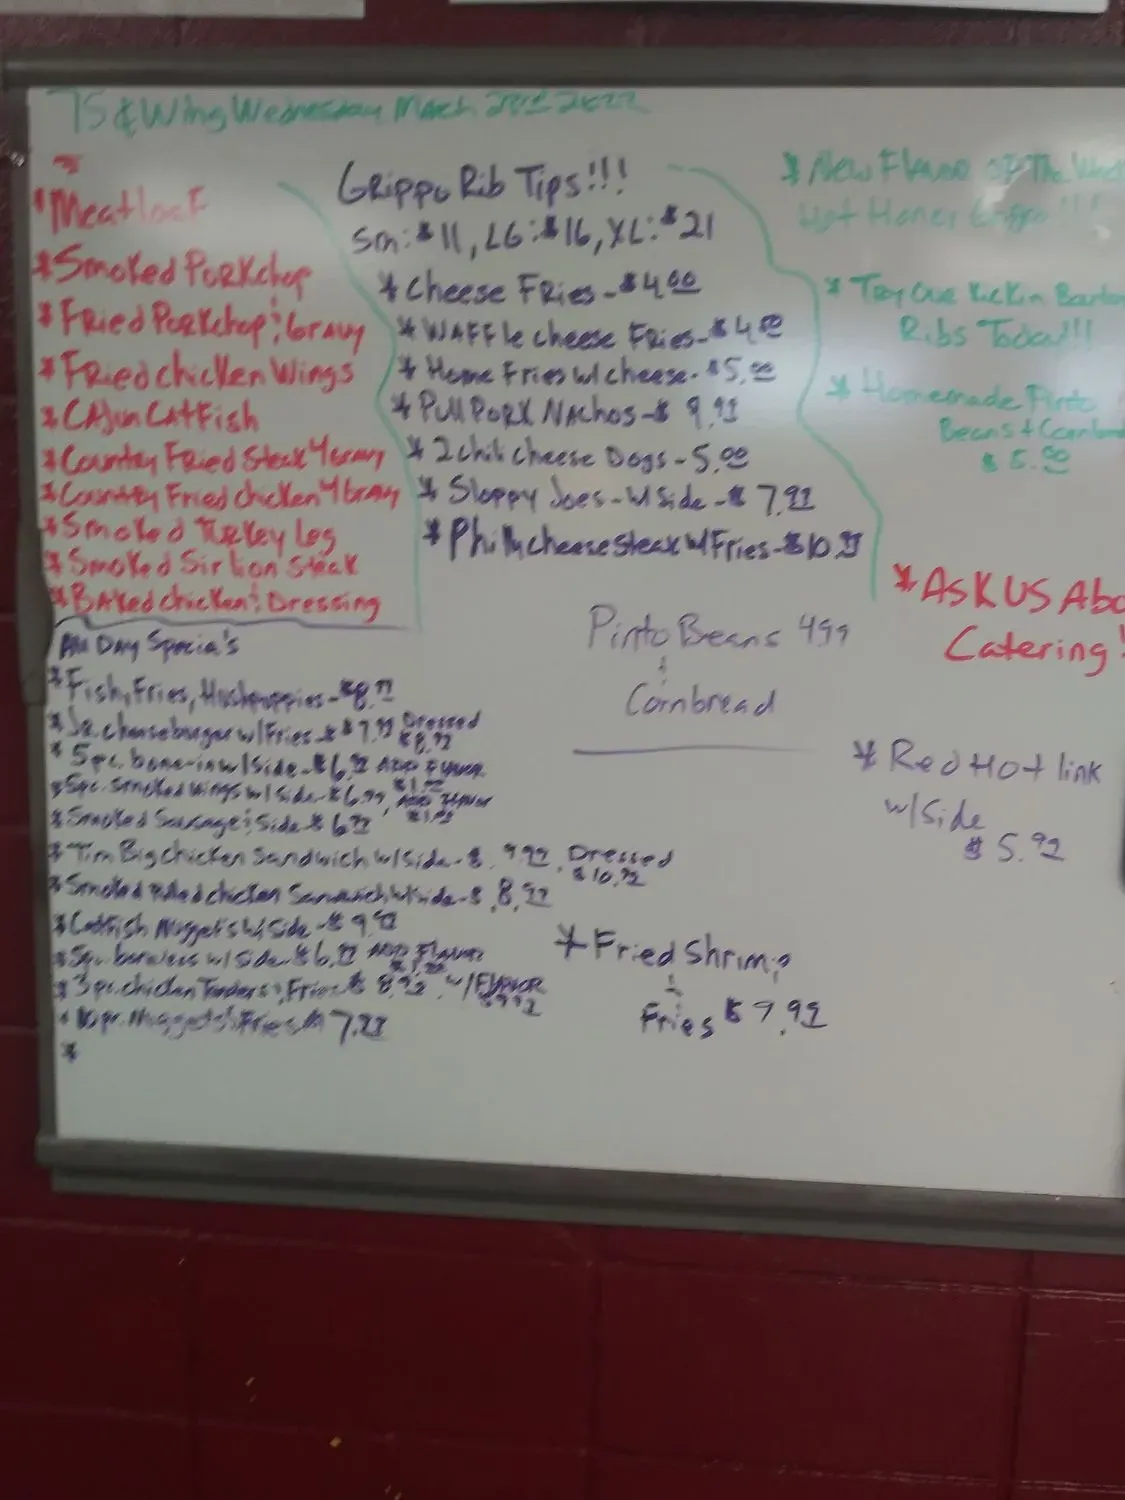 75¢ Wing Wednesday March 2022
*Meatloaf
*Smoked Porkchop
*Fried Porkchop & Gravy
*Fried chicken Wings
*Cajun Catfish
*Country Fried Steak & Gravy
*Country Fried chicken & Gravy
*Smoked Turkey Leg
*Smoked Sirlion Steak
*Baked chicken & Dressing
Grippo Rib Tips!!!
Sm:$11, LG:$16, XL:$21
*Cheese Fries-$4.00
*Waffle cheese Fries-$4.50
*Home Fries w/cheese-$5.00
*Pull Pork Nachos-$9.99
*2 chili cheese Dogs-5.00
*Sloppy Joes-w/Side-$7.99
*Philly cheese steak w/Fries-$10.99
*New Flavor of The Week
Hot Honey Grippo!!!
*Try Our Kickin Bourbon
Ribs Today!!
*Homemade Pinto
Beans + Cornbread
$5.00
*Ask US Abo
Catering!
All Day Special's
*Fish, Fries, Hushpuppies-$8.99
*Jr. cheeseburger w/Fries-$7.99 Dressed
$8.99
*5pc. bone-in w/Side-$6.99 ADD Flavor
$1.00
*5pc. smoked wings w/side-$6.99, ADD Flavor
$1.00
*Smoked Sausage & Side $6.99
*Tim Big chicken Sandwich w/Side-$9.99, Dressed
$10.99
*Smoked Pulled chicken Sandwich w/side-$8.99
*Catfish Nuggets w/Side-$9.99
*5pc. boneless w/Side-$6.99 ADD Flavor
$1.00
*3pc. chicken Tenders & Fries $8.99 w/Flavor
$9.99
*10pc. Nuggets & Fries $7.99
*
Pinto Beans 499
&
Cornbread
*Red Hot link
w/Side
$5.99
*Fried Shrimp
&
Fries $7.99